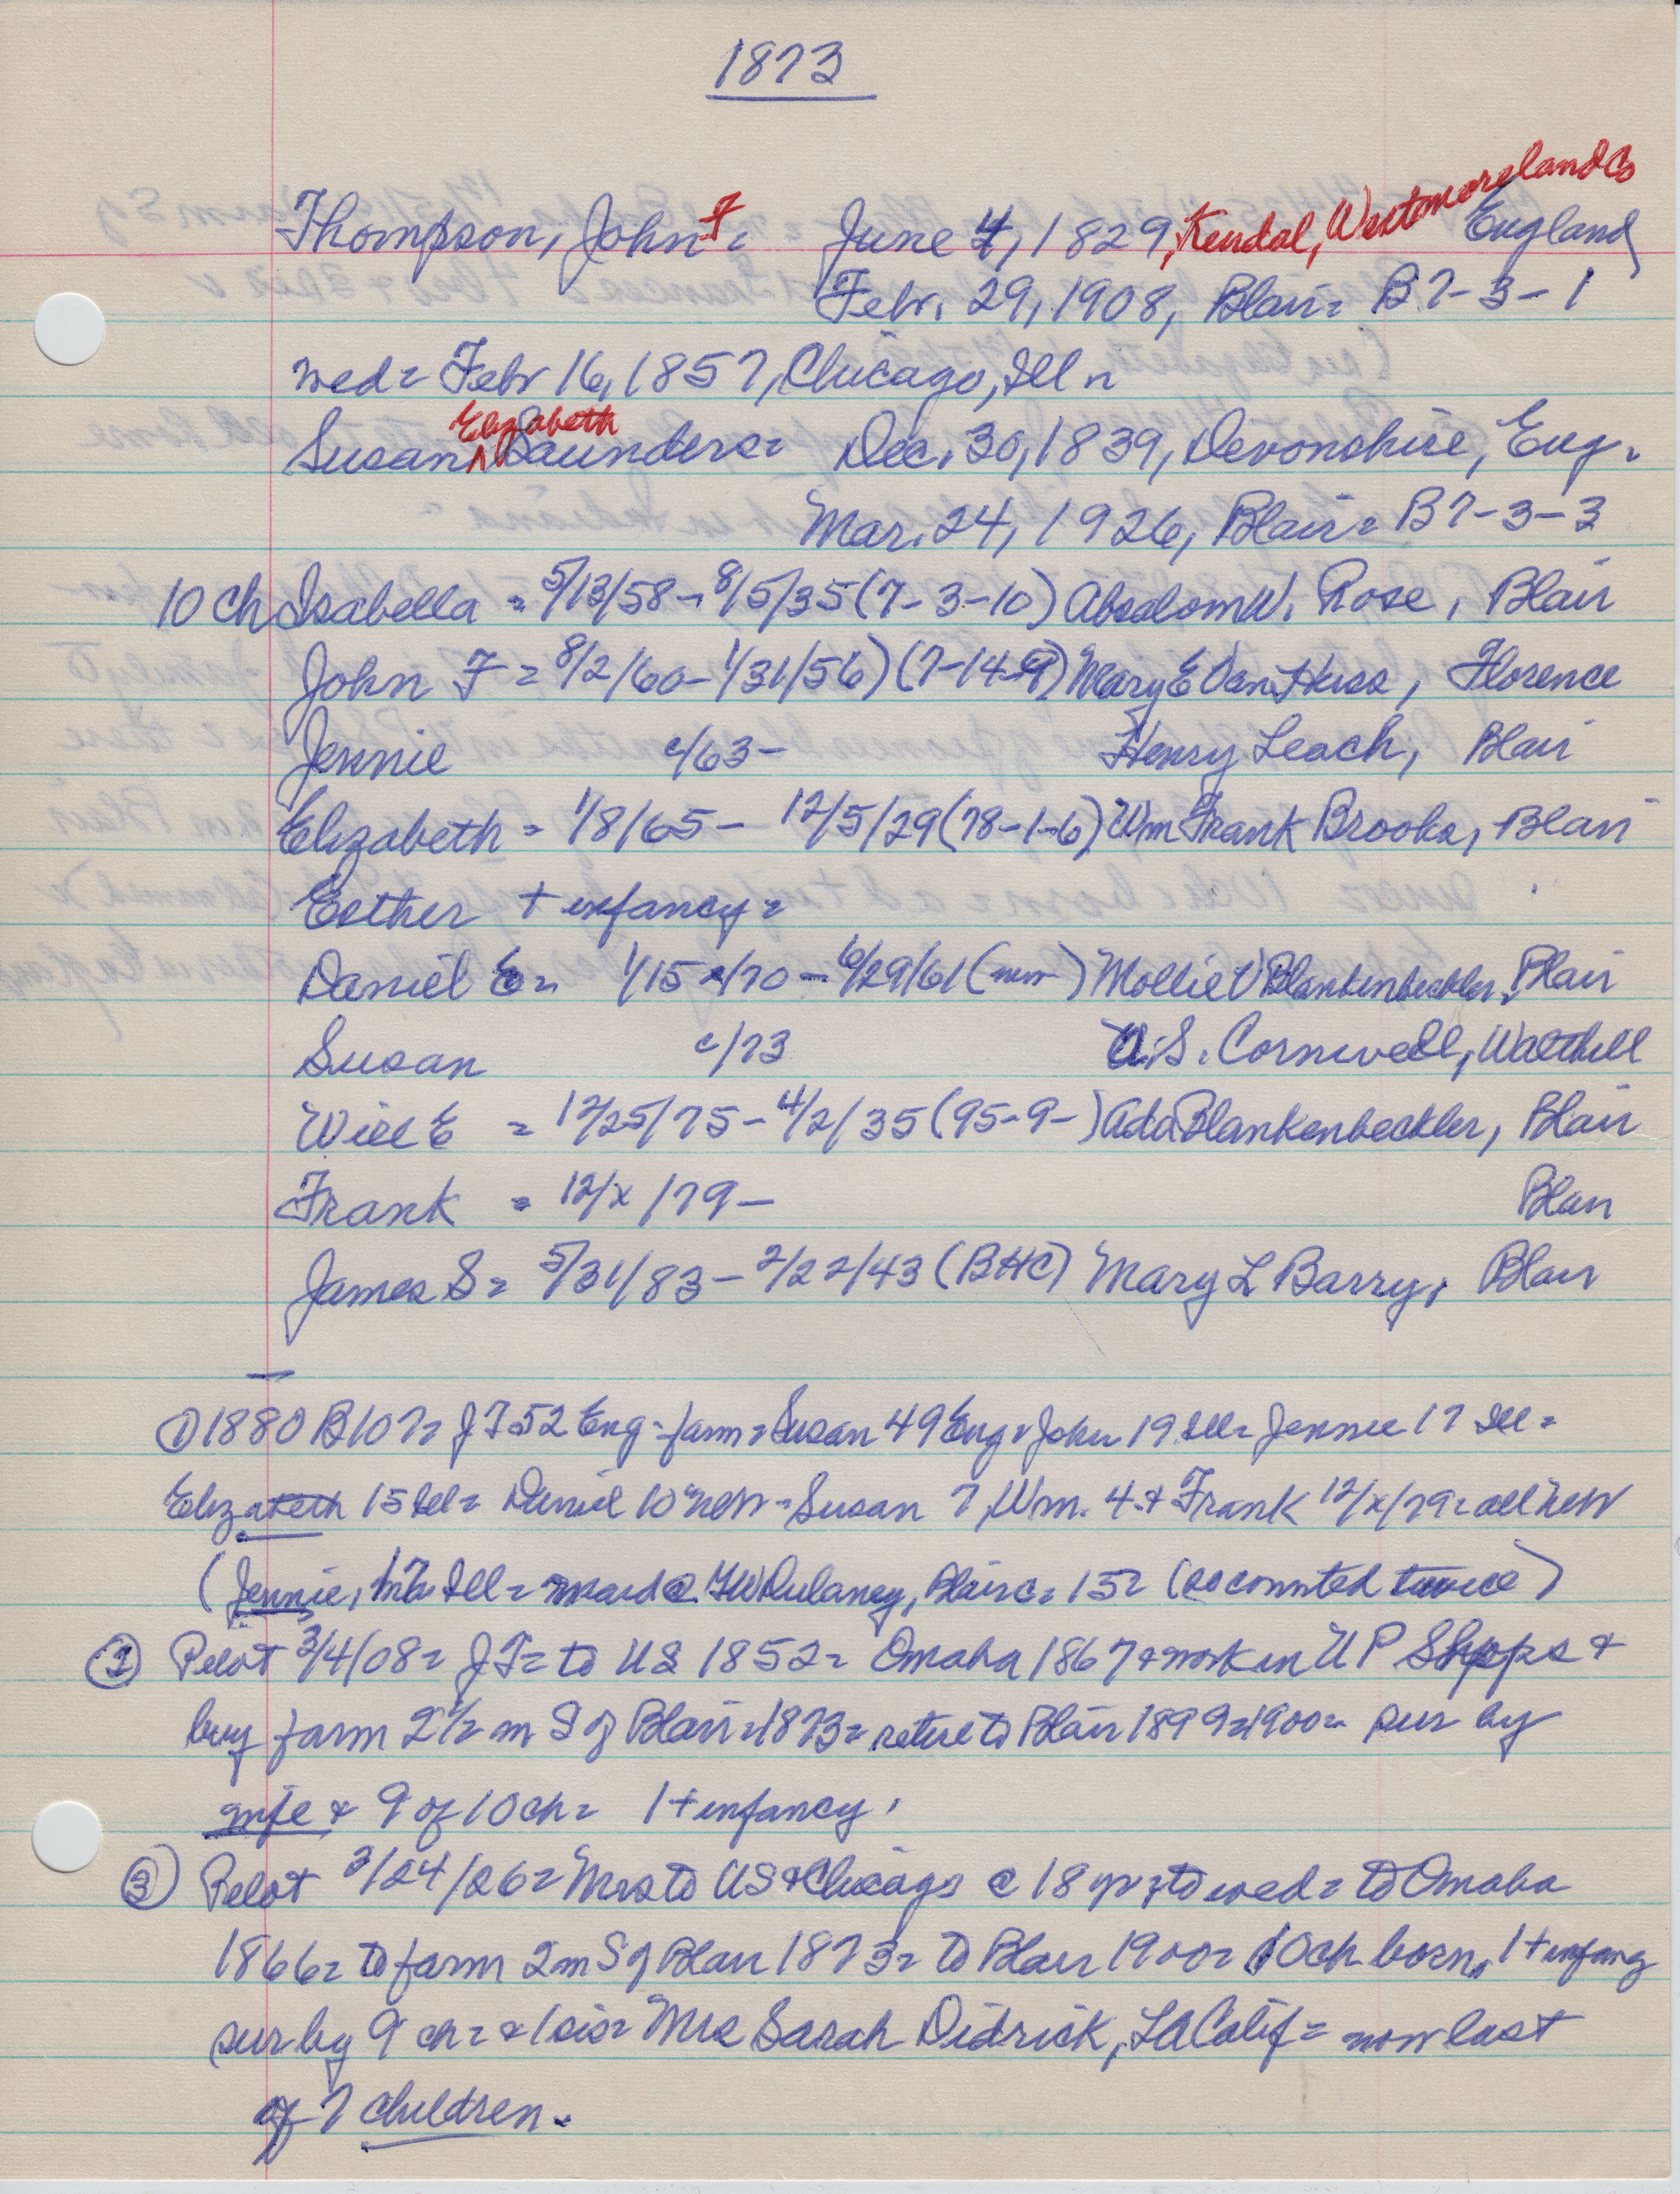 1873
Thompson, John F = June 4, 1829, Kendal, Westmoreland Co England
Febr. 29, 1908, Blair = B 7-3-1
wed = Febr 16, 1857, Chicago, Ill n
Susan Elizabeth Saunders = Dec. 30, 1839, Devonshire, Eng.
Mar. 24, 1926, Blair = B 7-3-3
10 ch Isabella = 5/13/58 - 8/5/35 (7-3-10) Absalom W. Rose, Blair
John F = 8/2/60 - 1/31/56) (7-14-9) Mary E Van Huss, Florence
Jennie c/63 - Henry Leach, Blair
Elizabeth = 1/8/65 - 12/5/29 (78-1-6) Wm Frank Brooks, Blair
Esther + infancy =
Daniel E = 1/15 /70 - 6/29/61 (mm) Mollie V Blankenbeckler, Blair
Susan c/73 A. S. Cornwell, Walthill
Will E = 12/25/75 - 4/2/35 (95-9-) Ada Blankenbeckler, Blair
Frank = 12/x/79 - Blair
James S = 5/31/83 - 2/22/43 (BHC) Mary L Barry, Blair
① 1880 B107 = J F 52 Eng - farm = Susan 49 Eng = John 19 Ill = Jennie 17 Ill =
Elizabeth 15 Ill = Daniel 10 Neb - Susan 7, Wm. 4 + Frank 12/x/79 = all Neb
(Jennie, Ill = maid @ Dulaney, Blair c = 15 = (so counted twice)
② Pilot 3/4/08 = J F = to US 1852 = Omaha 1867 + work in U P Shops +
buy farm 2 1/2 m S of Blair = 1873 = retire to Blair 1899 = 1900 = sur by
wife + 9 of 10 ch = 1 + infancy.
③ Pilot 3/24/26 = Mrs to US + Chicago @ 18 yr = to wed = to Omaha
1866 = to farm 2 m S of Blair 1873 = to Blair 1900 = 10 ch born, 1 + infancy
sur by 9 ch = + 1 sis = Mrs Sarah Didrick, LA Calif = now last
of 7 children.